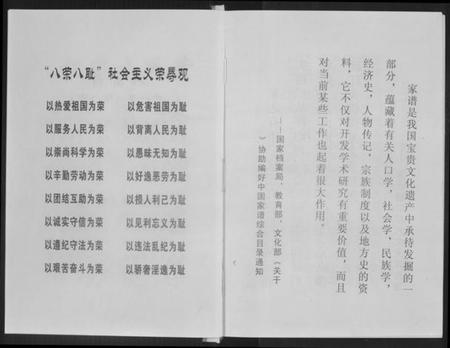 “八荣八耻”社会主义荣辱观
以热爱祖国为荣 以危害祖国为耻
以服务人民为荣 以背离人民为耻
以崇尚科学为荣 以愚昧无知为耻
以辛勤劳动为荣 以好逸恶劳为耻
以团结互助为荣 以损人利己为耻
以诚实守信为荣 以见利忘义为耻
以遵纪守法为荣 以违法乱纪为耻
以艰苦奋斗为荣 以骄奢淫逸为耻
家谱是我国宝贵文化遗产中承待发掘的一
部分，蕴藏着有关人口学，社会学，民族学，
经济史，人物传记，宗族制度以及地方史的资
料，它不仅对开发学术研究有重要价值，而且
对当前某些工作也起着很大作用。
——国家档案局、教育部、文化部（关于
）协助编好中国家谱综合目录通知